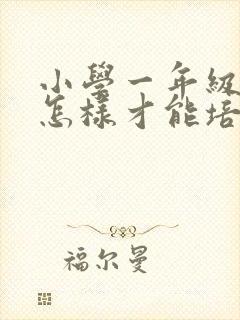 小學一年級
怎樣才能培
福尔曼